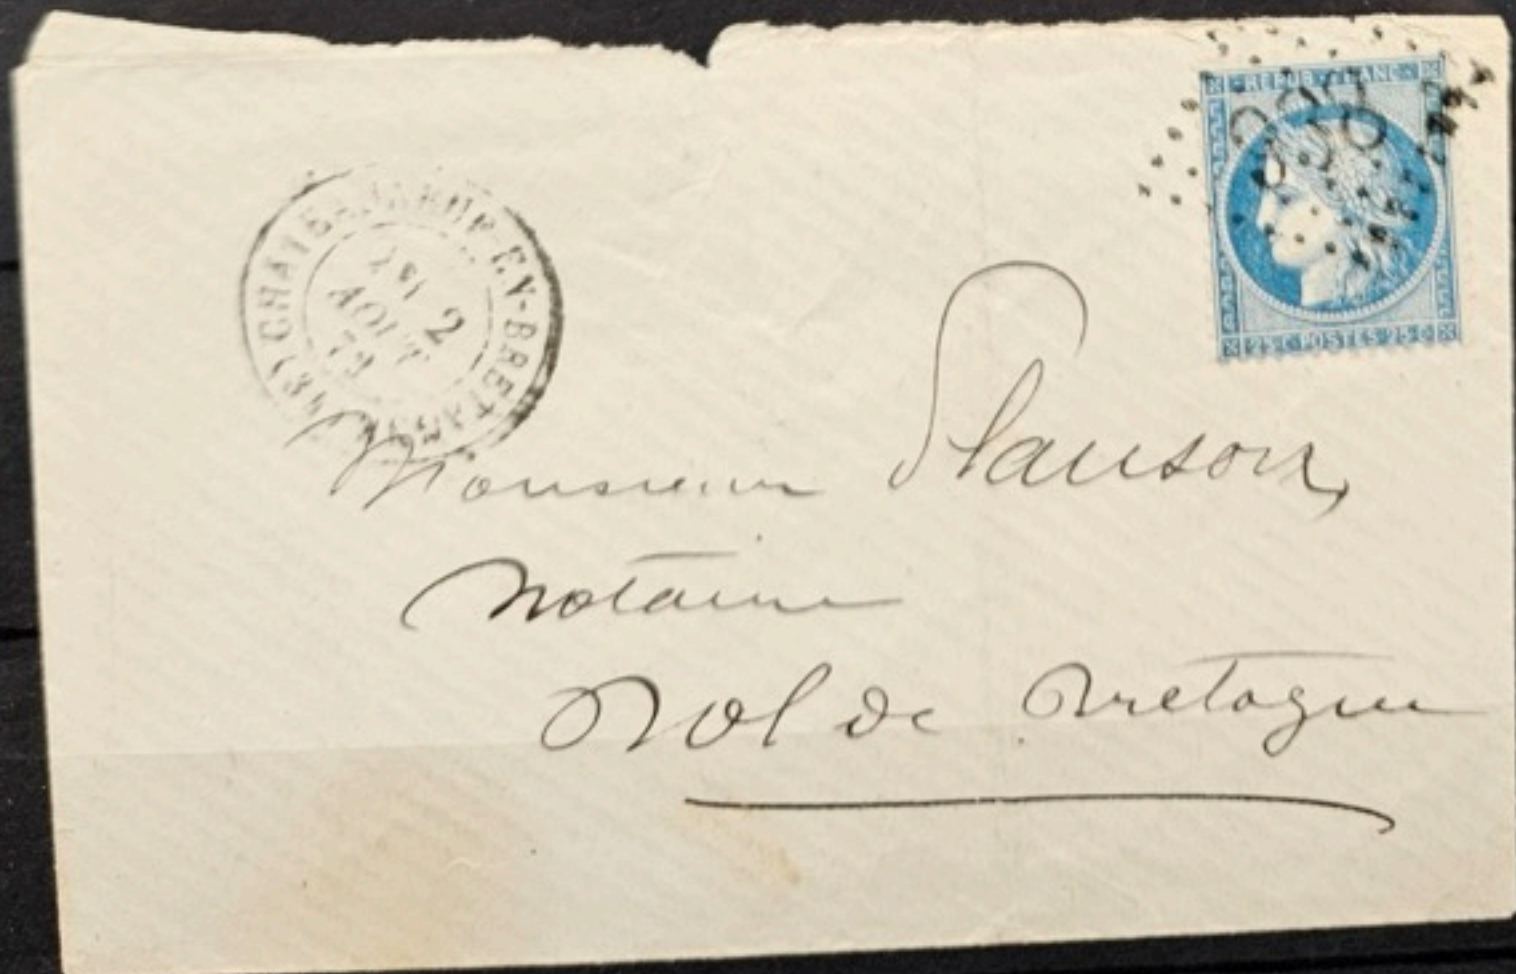 REPUB · FRANC ·
25 C POSTES 25 C
EN-BRETAGNE
2
AOUT
Monsieur Plauson
notaire
Dol de Bretagne